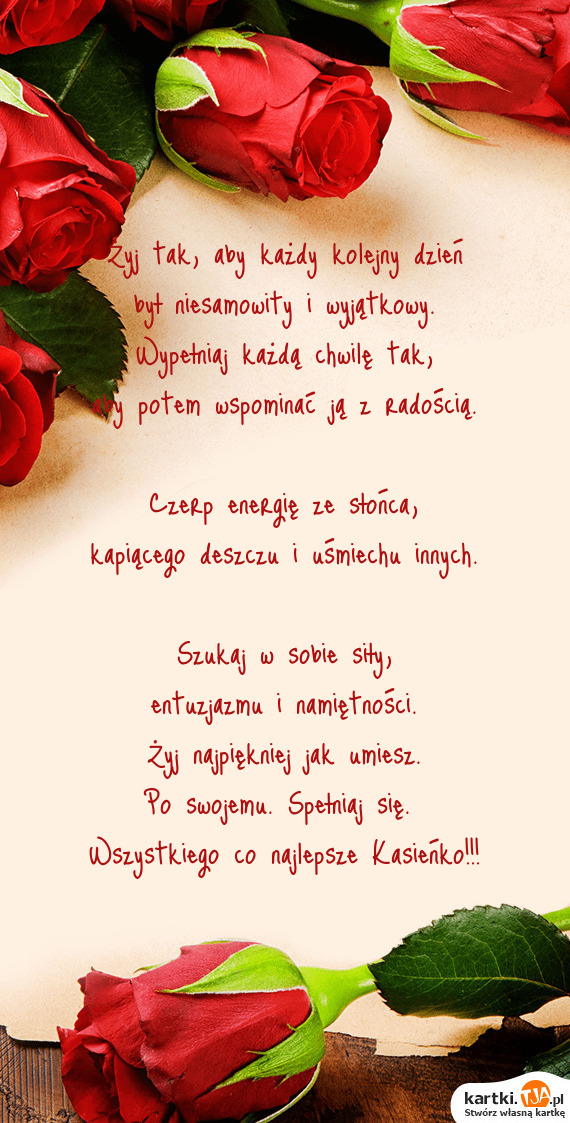 Żyj tak, aby każdy kolejny dzień
był niesamowity i wyjątkowy.
Wypełniaj każdą chwilę tak,
aby potem wspominać ją z radością.
Czerp energię ze słońca,
kapiącego deszczu i uśmiechu innych.
Szukaj w sobie siły,
entuzjazmu i namiętności.
Żyj najpiękniej jak umiesz.
Po swojemu. Spełniaj się.
Wszystkiego co najlepsze Kasieńko!!!
kartki.TJA.pl
Stwórz własną kartkę